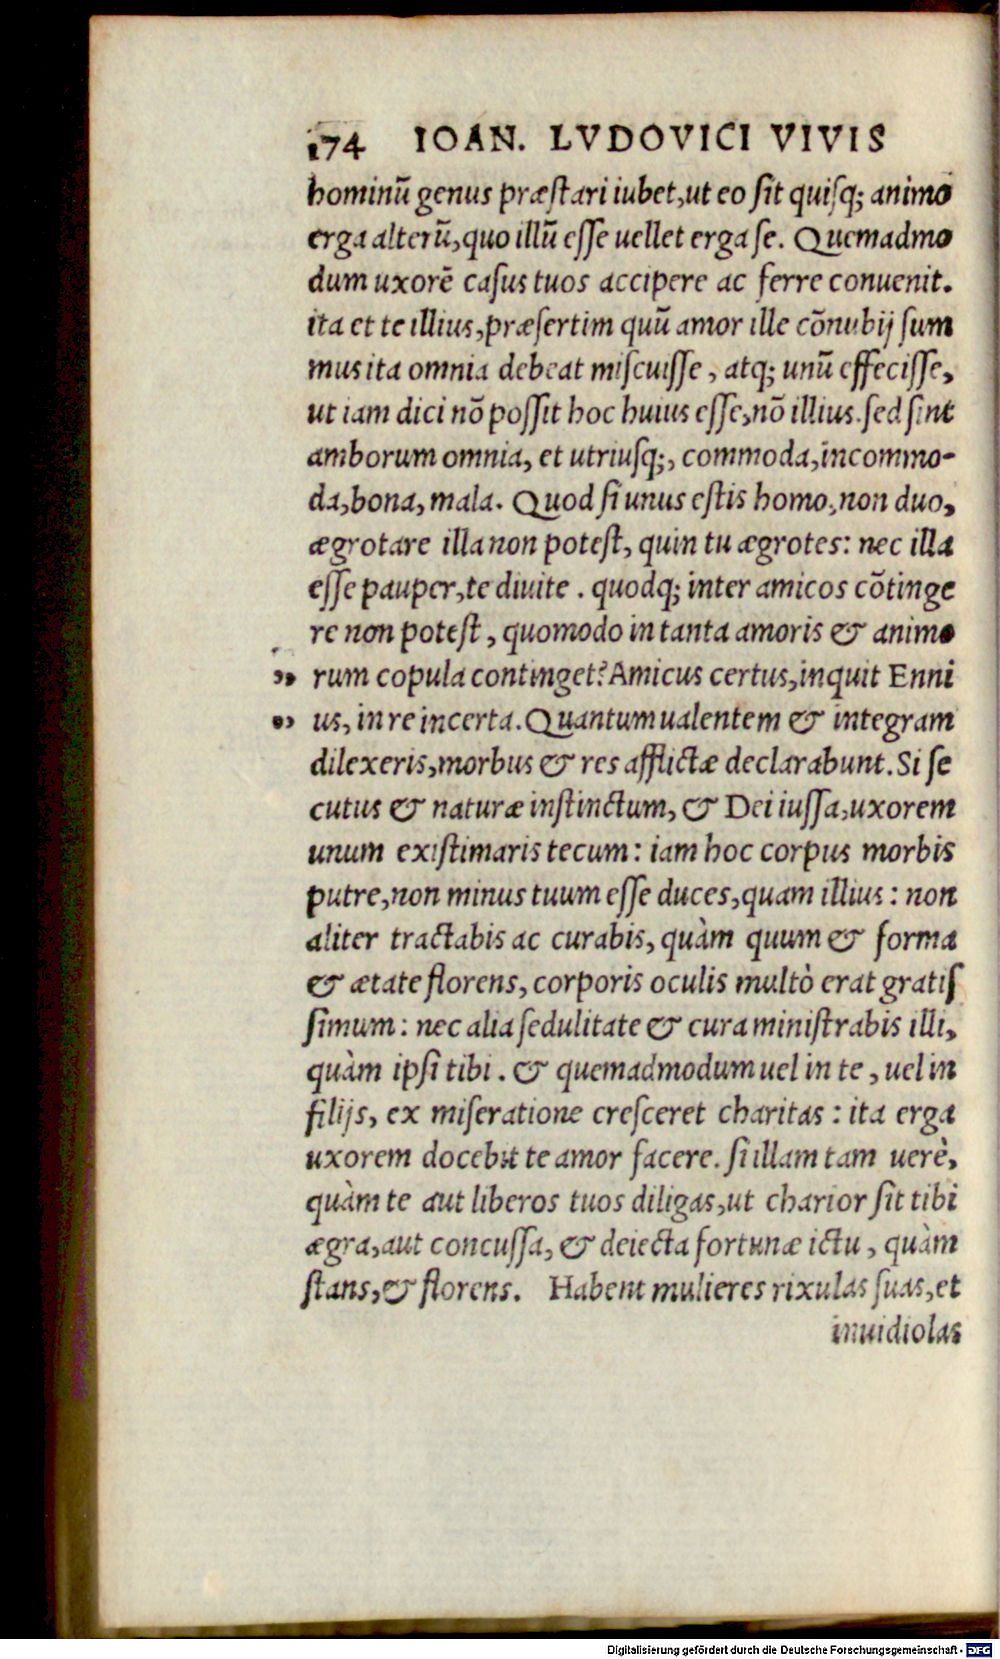 174 IOAN. LVDOVICI VIVIS
hominũ genus præſtari iubet,ut eo ſit quiſq; animo
erga alterũ,quo illũ eſſe uellet erga ſe. Quemadmo
dum uxorẽ caſus tuos accipere ac ferre conuenit.
ita et te illius,præſertim quũ amor ille cõnubij ſum
mus ita omnia debeat miſcuiſſe, atq; unũ effeciſſe,
ut iam dici nõ poſſit hoc huius eſſe,nõ illius.ſed ſint
amborum omnia, et utriuſq;, commoda,incommo-
da,bona, mala. Quod ſi unus eſtis homo,non duo,
ægrotare illa non poteſt, quin tu ægrotes: nec illa
eſſe pauper,te diuite . quodq; inter amicos cõtinge
re non poteſt, quomodo in tanta amoris & animo
„ rum copula continget? Amicus certus,inquit Enni
„ us, in re incerta. Quantum ualentem & integram
dilexeris,morbus & res afflictæ declarabunt. Si ſe
cutus & naturæ inſtinctum, & Dei iuſſa,uxorem
unum exiſtimaris tecum: iam hoc corpus morbis
putre,non minus tuum eſſe duces,quam illius: non
aliter tractabis ac curabis, quàm quum & forma
& ætate florens, corporis oculis multò erat gratiſ
ſimum: nec alia ſedulitate & cura miniſtrabis illi,
quàm ipſi tibi. & quemadmodum uel in te, uel in
filijs, ex miſeratione creſceret charitas: ita erga
uxorem docebit te amor facere. ſi illam tam uerè,
quàm te aut liberos tuos diligas,ut charior ſit tibi
ægra,aut concuſſa, & deiecta fortunæ ictu, quàm
ſtans,& florens. Habent mulieres rixulas ſuas,et
inuidiolas
Digitalisierung gefördert durch die Deutsche Forschungsgemeinschaft - DFG